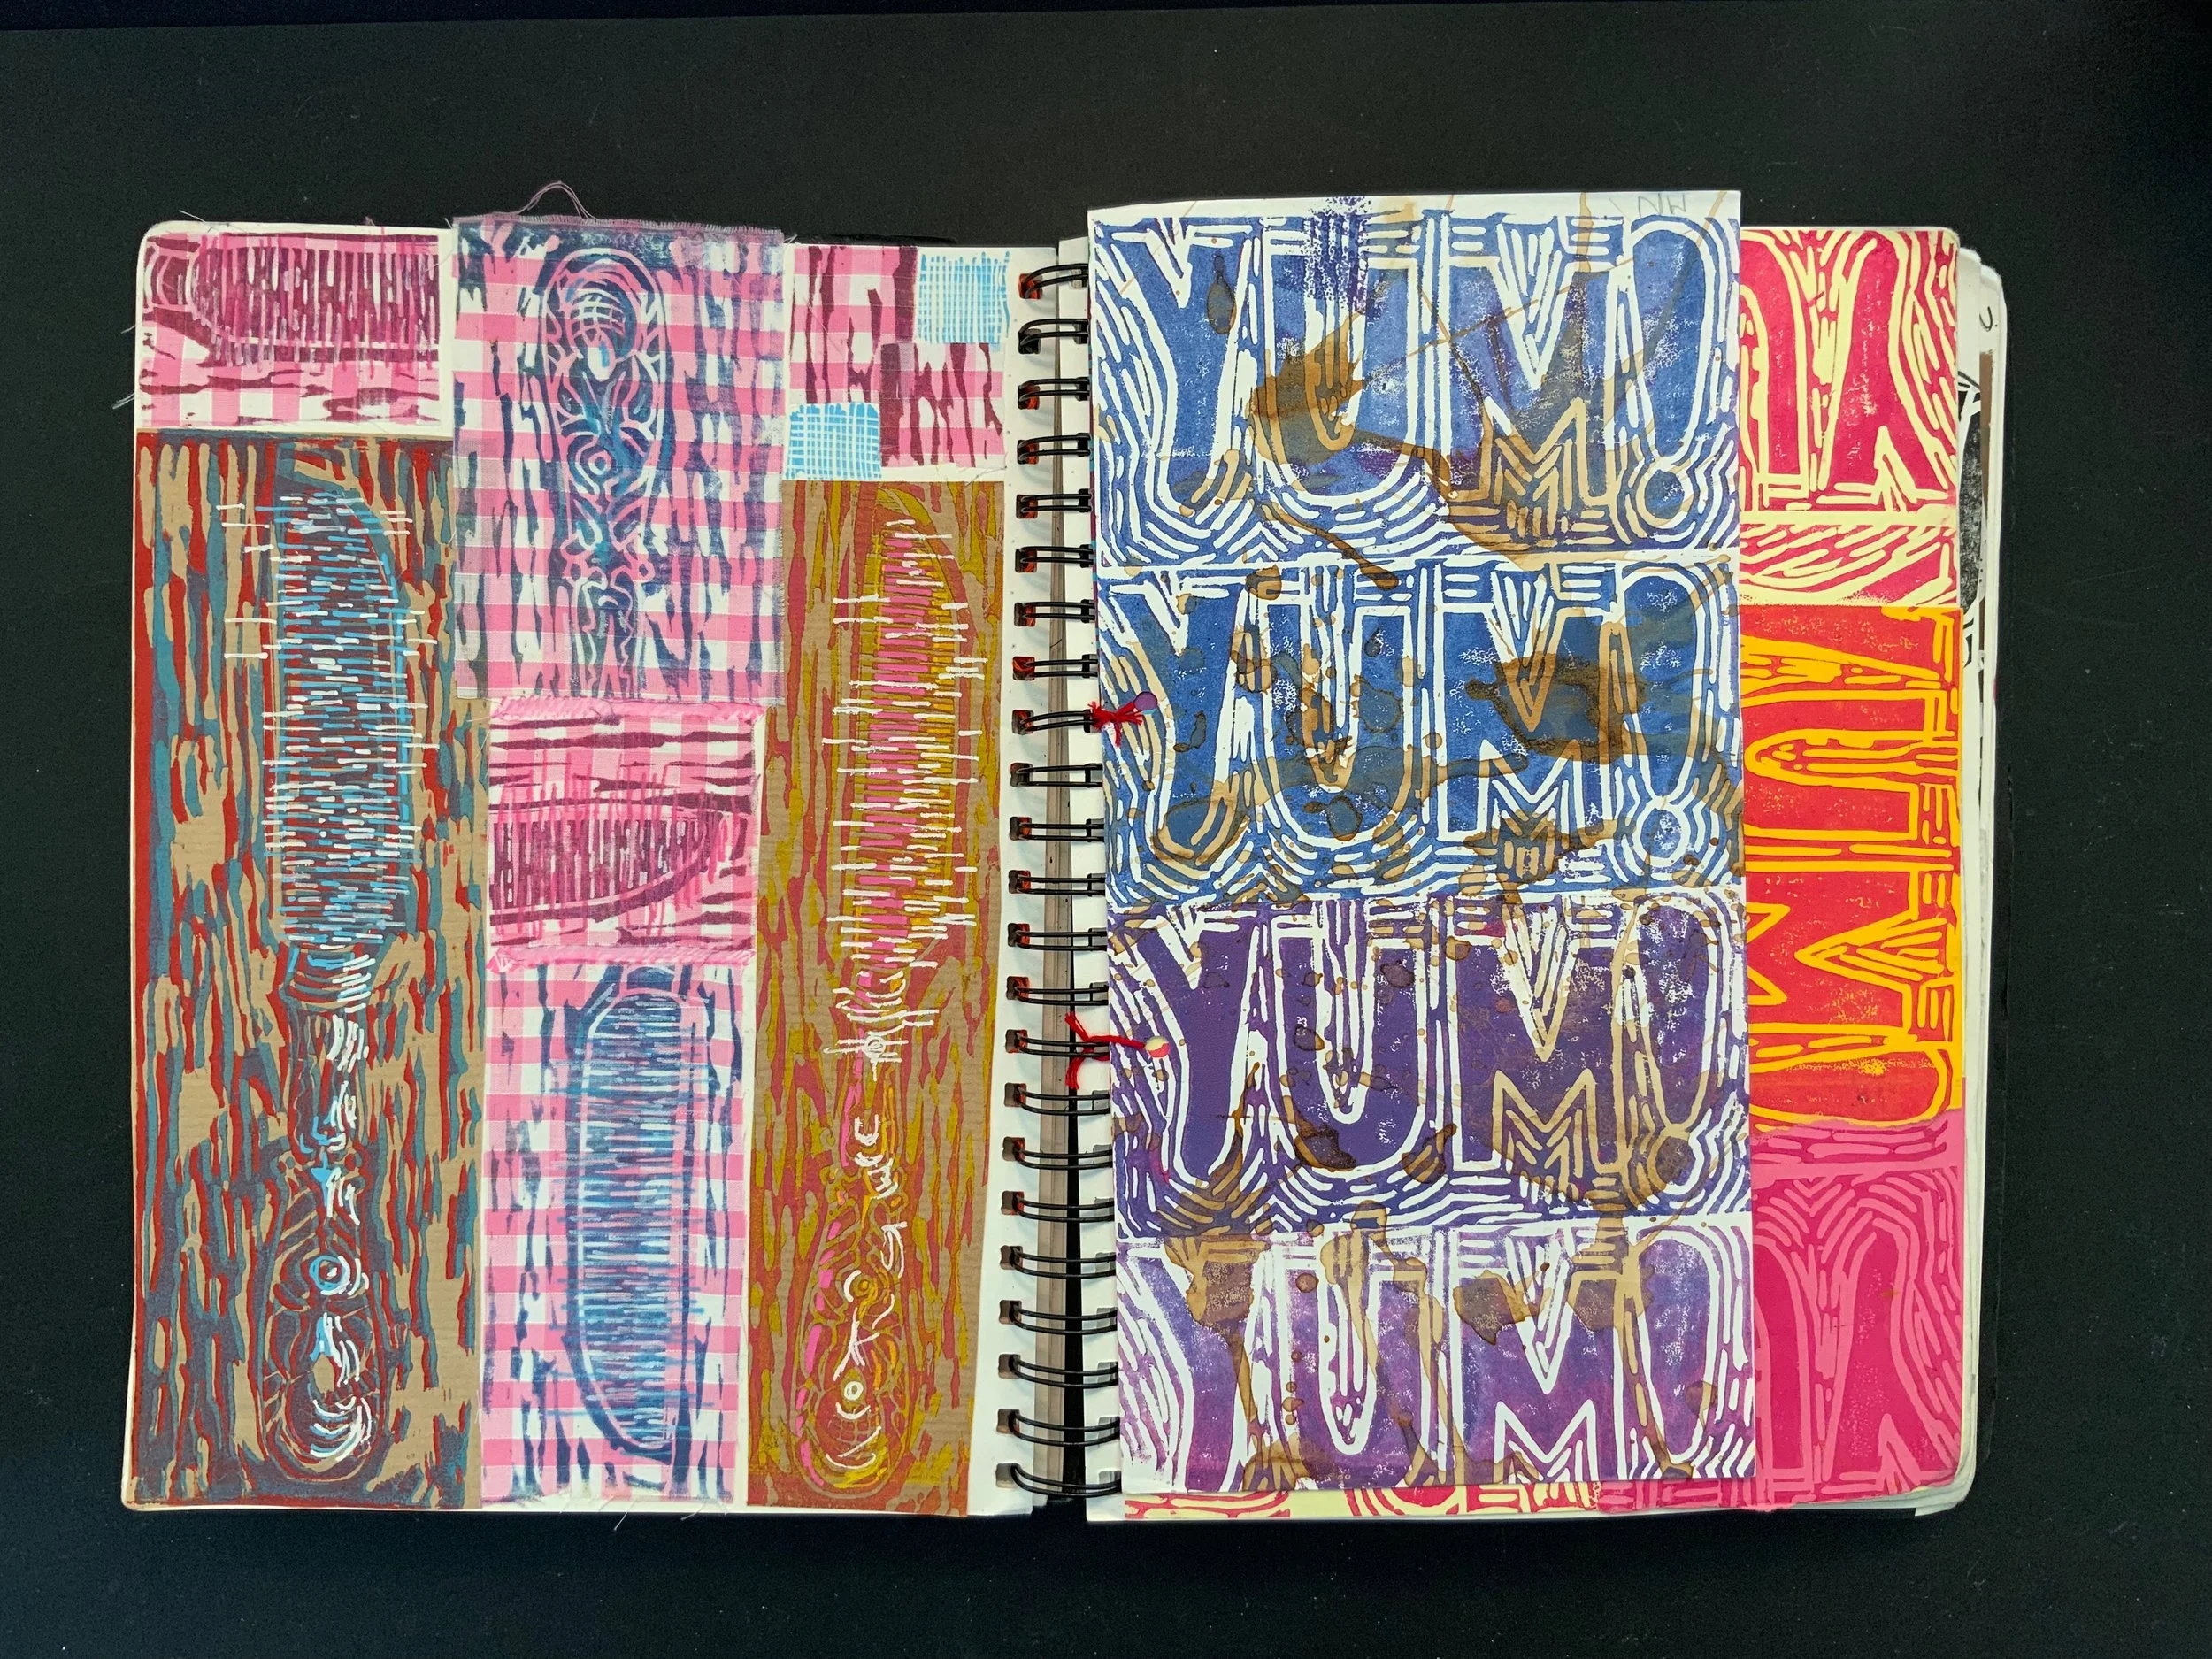 YUM!
YUM!
YUM!
YUM!